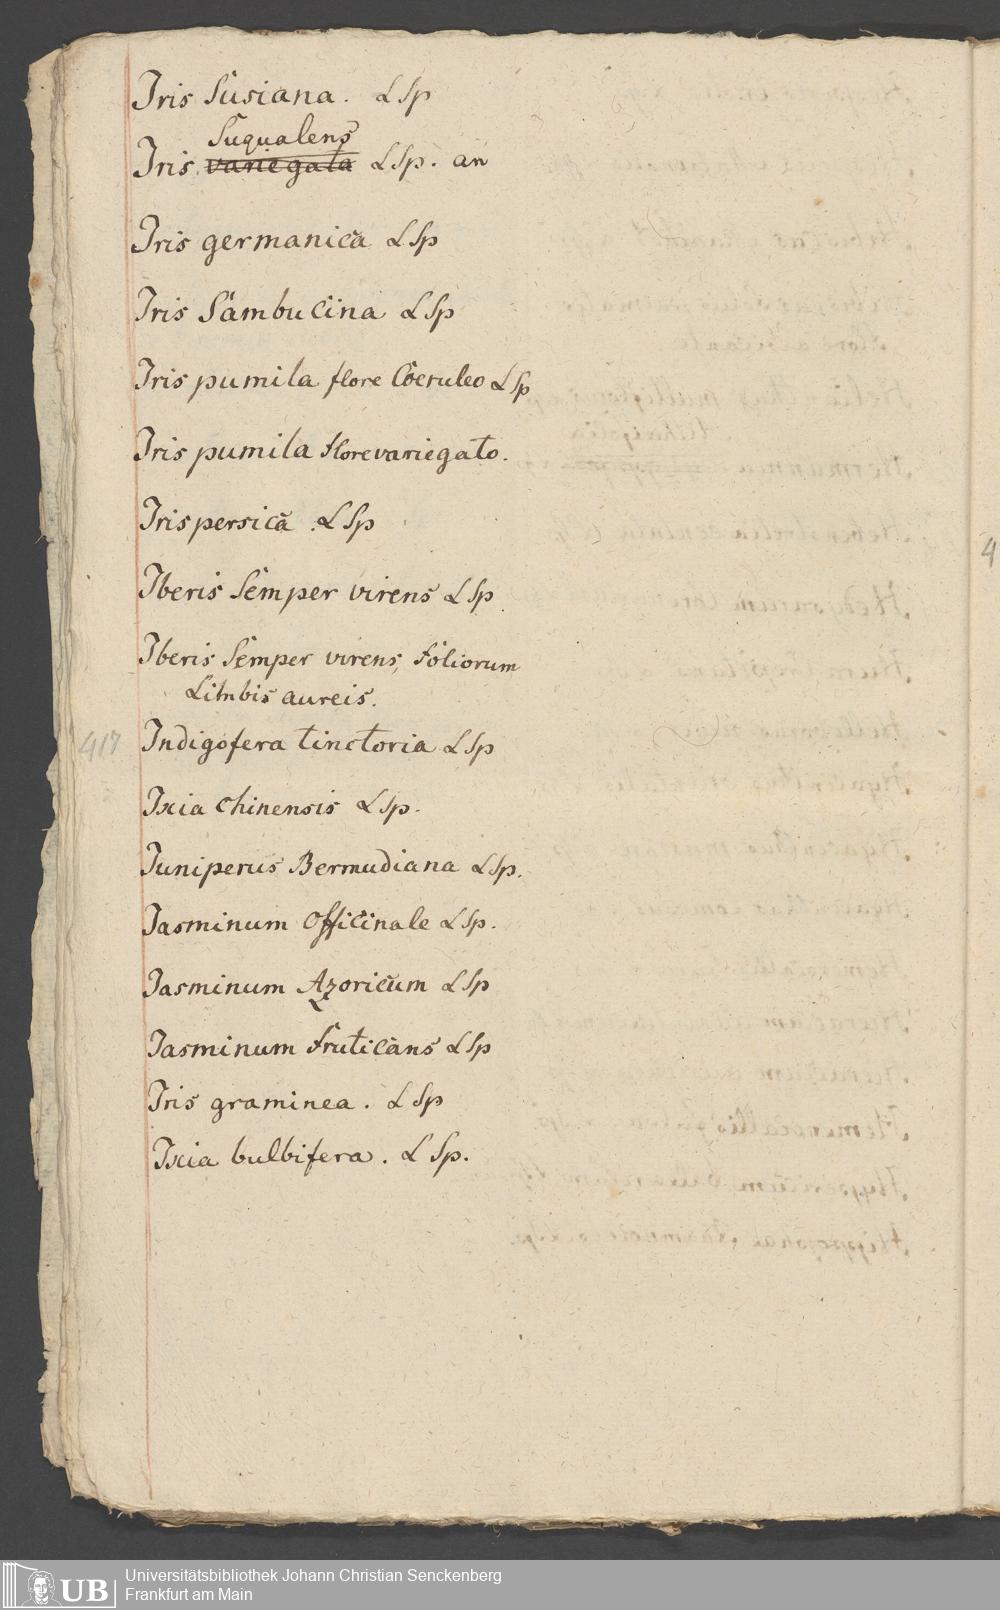 Iris Susiana. LSp
Suqualens
Iris variegata LSp. an
Iris germanica LSp
Iris Sambucina LSp
Iris pumila flore Coeruleo LSp
Iris pumila flore variegato.
Iris persica. LSp
Iberis Semper virens LSp.
Iberis Semper virens, foliorum
Limbis aureis.
417 Indigofera tinctoria LSp
Ixia Chinensis LSp.
Juniperus Bermudiana LSp.
Jasminum Officinale LSp.
Jasminum Azoricum LSp
Jasminum fruticans LSp
Iris graminea. LSp
Ixia bulbifera. LSp.
4
UB
Universitätsbibliothek Johann Christian Senckenberg
Frankfurt am Main